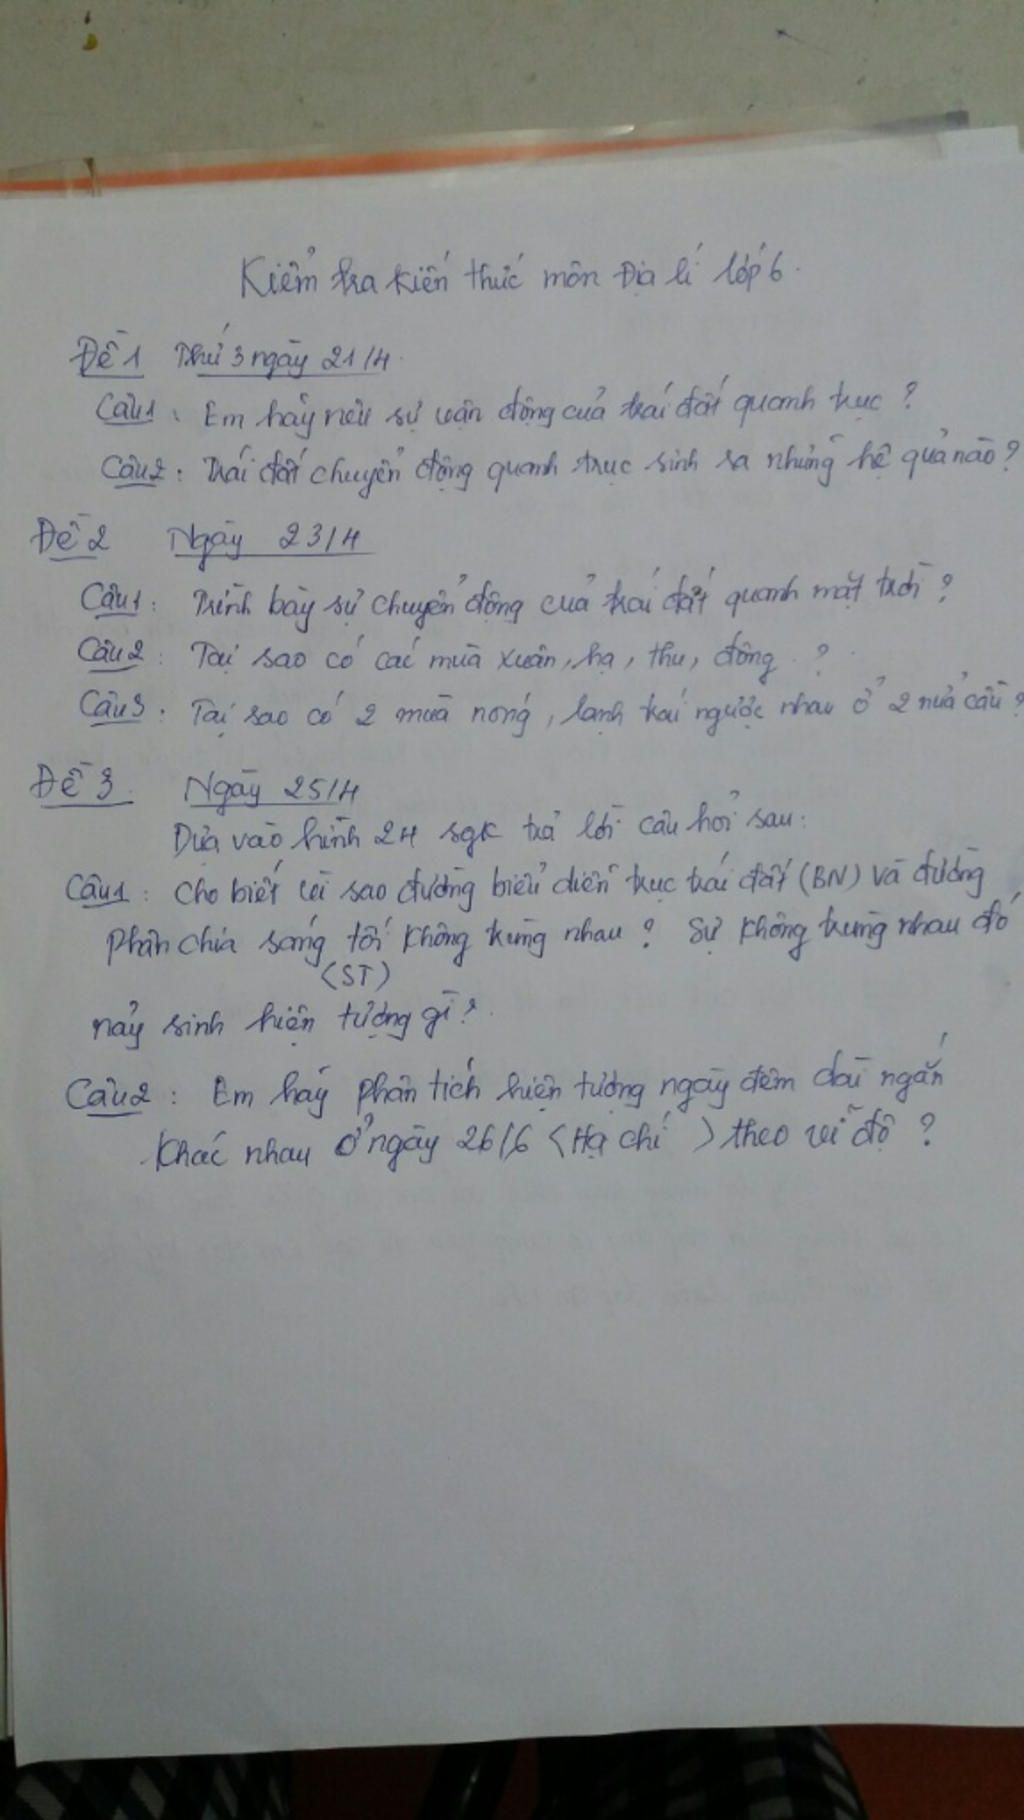 Kiểm tra kiến thức môn Địa lí lớp 6.
Đề 1 Thứ 3 ngày 21/4.
Câu 1: Em hãy nêu sự vận động của trái đất quanh trục?
Câu 2: Trái đất chuyển động quanh trục sinh ra những hệ quả nào?
Đề 2 Ngày 23/4
Câu 1: Trình bày sự chuyển động của trái đất quanh mặt trời?
Câu 2: Tại sao có các mùa xuân, hạ, thu, đông?
Câu 3: Tại sao có 2 mùa nóng, lạnh trái ngược nhau ở 2 nửa cầu?
Đề 3. Ngày 25/4
Dựa vào hình 24 sgk trả lời câu hỏi sau:
Câu 1: Cho biết vì sao đường biểu diễn trục trái đất (BN) và đường
phân chia sáng tối không trùng nhau? Sự không trùng nhau đó
(ST)
nảy sinh hiện tượng gì?
Câu 2: Em hãy phân tích hiện tượng ngày đêm dài ngắn
khác nhau ở ngày 26/6 (Hạ chí) theo vĩ độ?